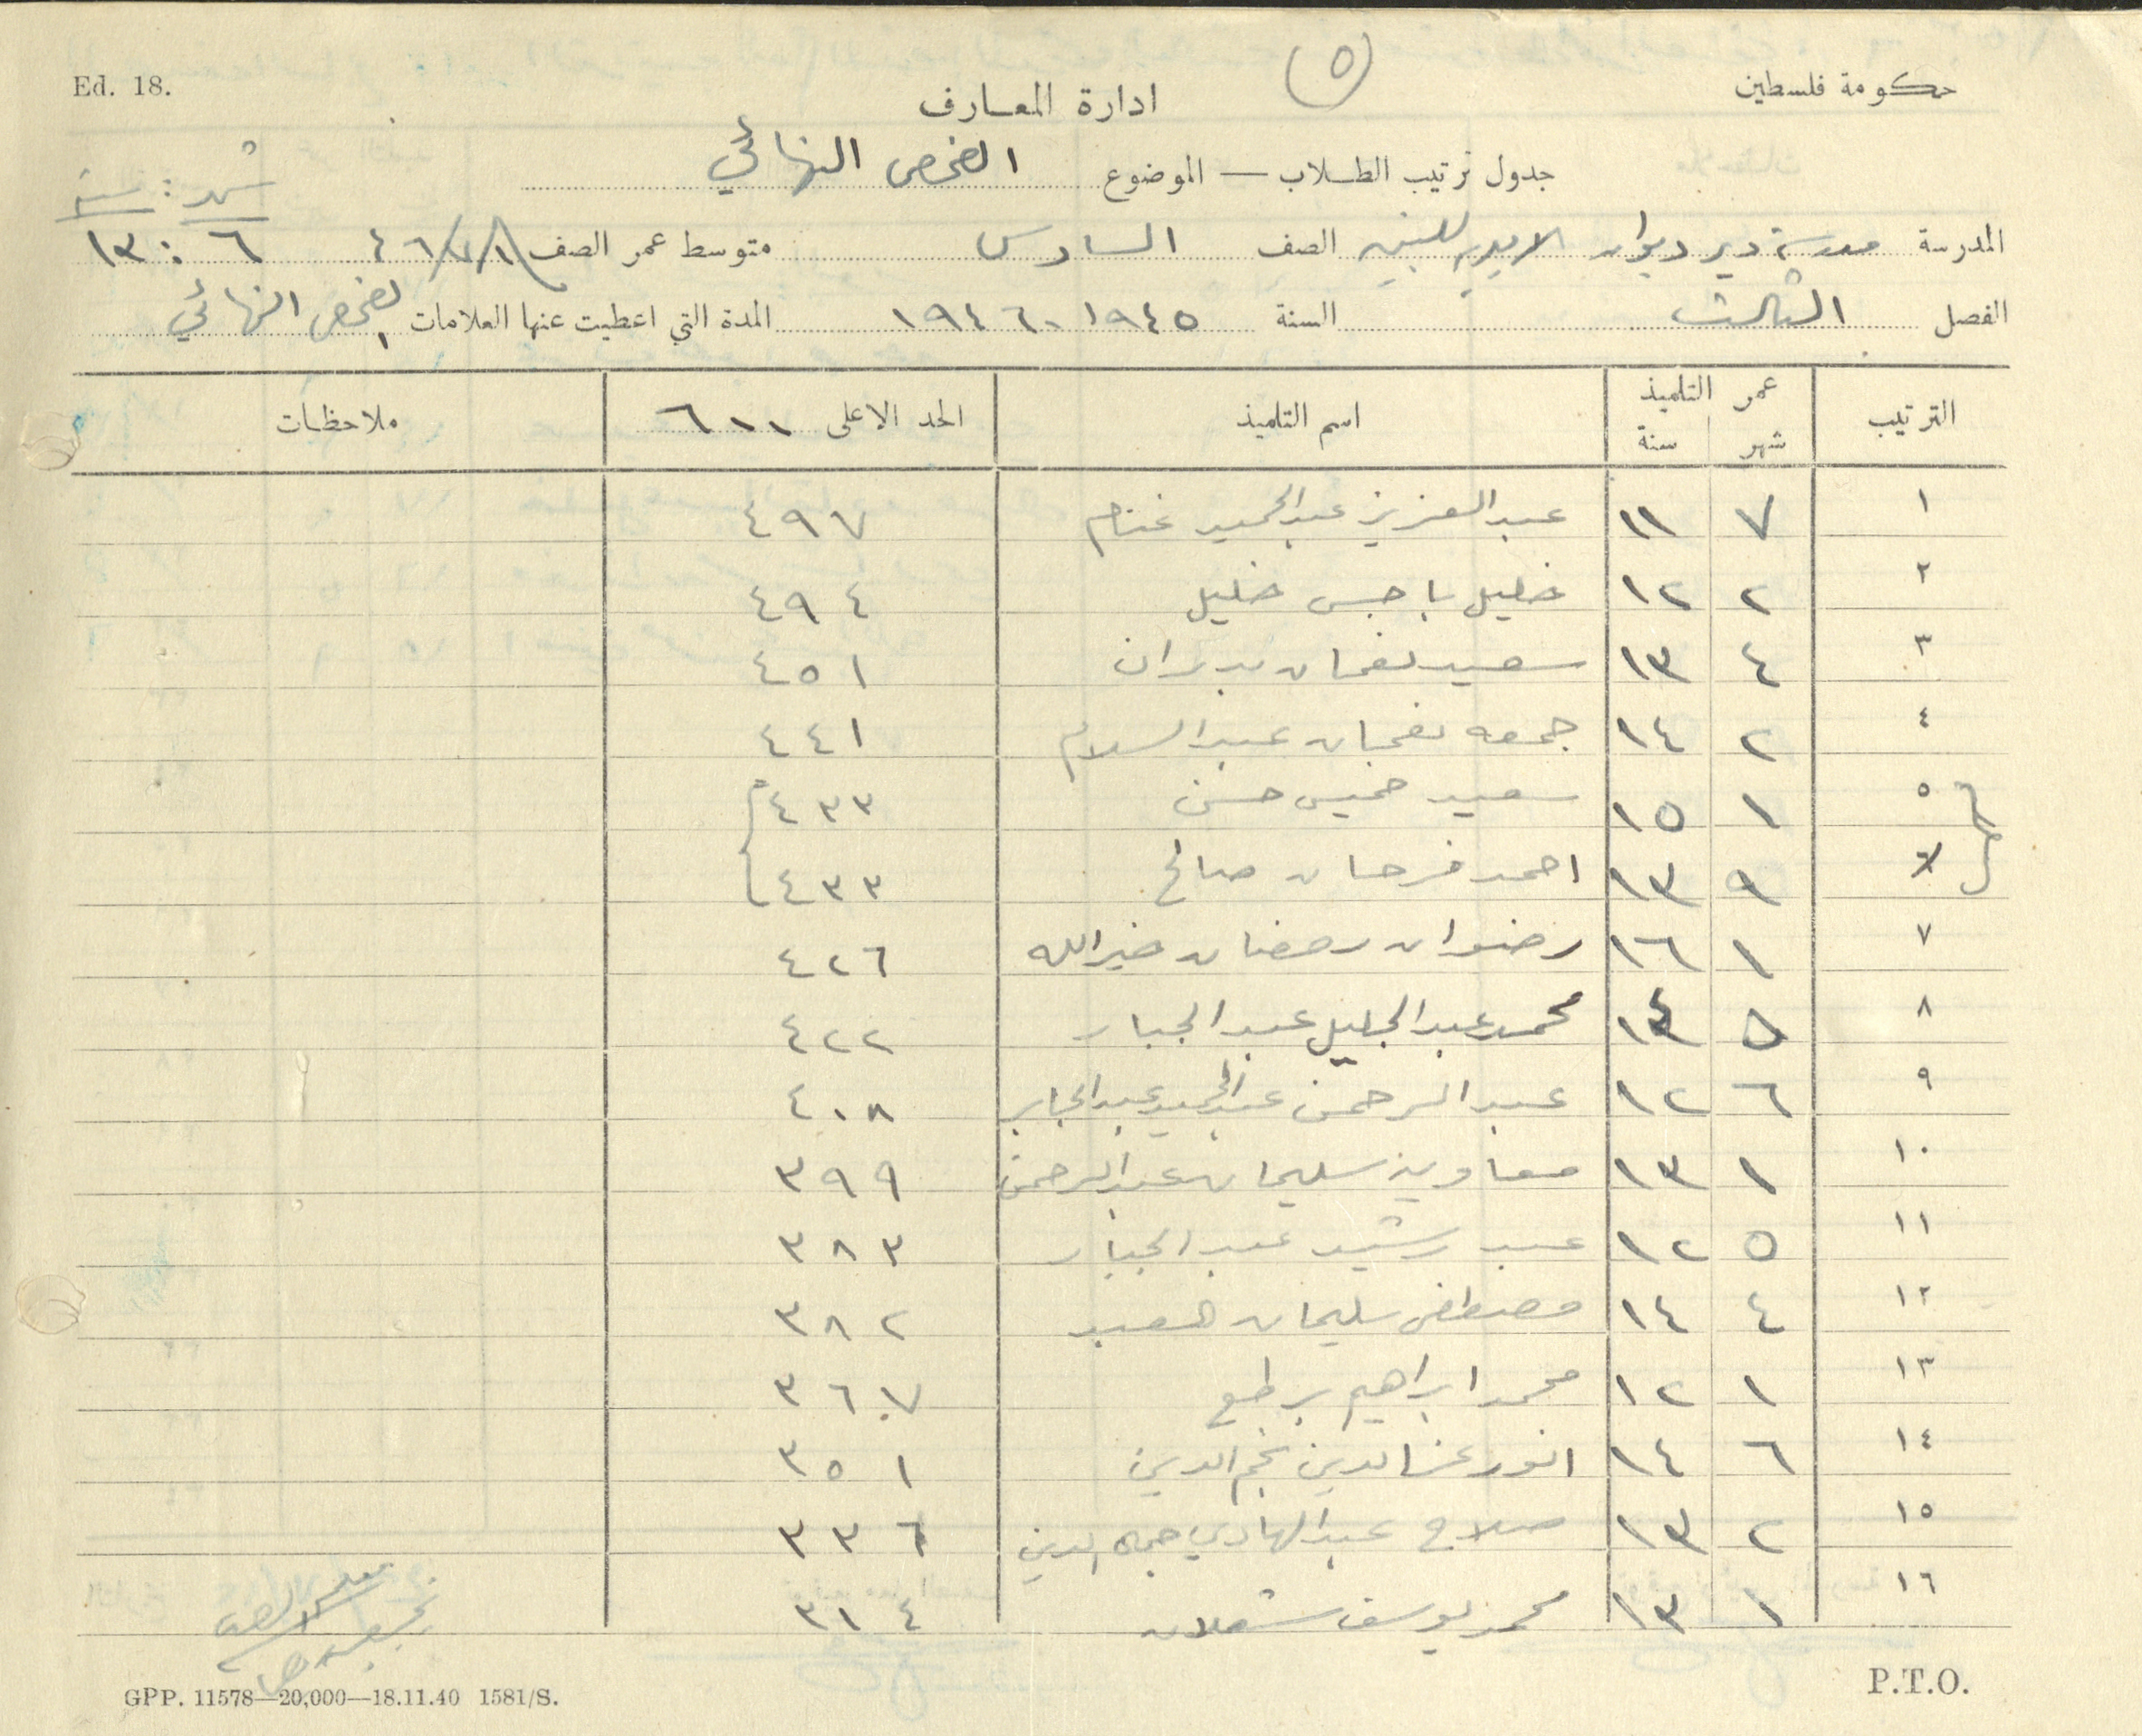 Ed. 18.
(٥)
حكومة فلسطين
ادارة المعارف
جدول ترتيب الطلاب — الموضوع الفحص النهائي
شهر : سنة
المدرسة مدرسة دير ديوان الاميرية للبنين الصف السادس متوسط عمر الصف ١/٧/٤٦ ٦ : ١٣
الفصل الثالث السنة ١٩٤٥ - ١٩٤٦ المدة التي اعطيت عنها العلامات الفحص النهائي
الترتيب عمر التلميذ شهر سنة اسم التلميذ الحد الاعلى ٦٠٠ ملاحظات
١ ٧ ١١ عبد العزيز عبد الحميد غنام ٤٩٧
٢ ٢ ١٢ خليل باجس خليل ٤٩٤
٣ ٤ ١٣ سعيد نعمان بدران ٤٥١
٤ ٢ ١٤ جمعه نعمان عبد السلام ٤٤١
٥ ١ ١٥ سعيد خميس حسن ٤٣٣
٦ ٩ ١٣ احمد فرحان صالح ٤٣٣
٧ ١ ١٦ رضوان رمضان خير الله ٤٢٦
٨ ٥ ١٤ محمد عبد الجليل عبد الجبار ٤٢٢
٩ ٦ ١٢ عبد الرحمن عبد الحميد عبد الجابر ٤٠٨
١٠ ١ ١٣ معاوية سليمان عبد الرحمن ٣٩٩
١١ ٥ ١٢ عبد رشيد عبد الجبار ٣٨٣
١٢ ٤ ١٤ مصطفى سليمان ٣٨٢
١٣ ١ ١٢ محمد ابراهيم ٣٦٧
١٤ ٦ ١٤ انور عز الدين نجم الدين ٣٥١
١٥ ٢ ١٣ صلاح عبد الهادي جمال الدين ٣٣٦
١٦ ١ ١٣ محمد يوسف شعلان ٣١٤
معلم الصف
GPP. 11578—20,000—18.11.40 1581/S.
P.T.O.